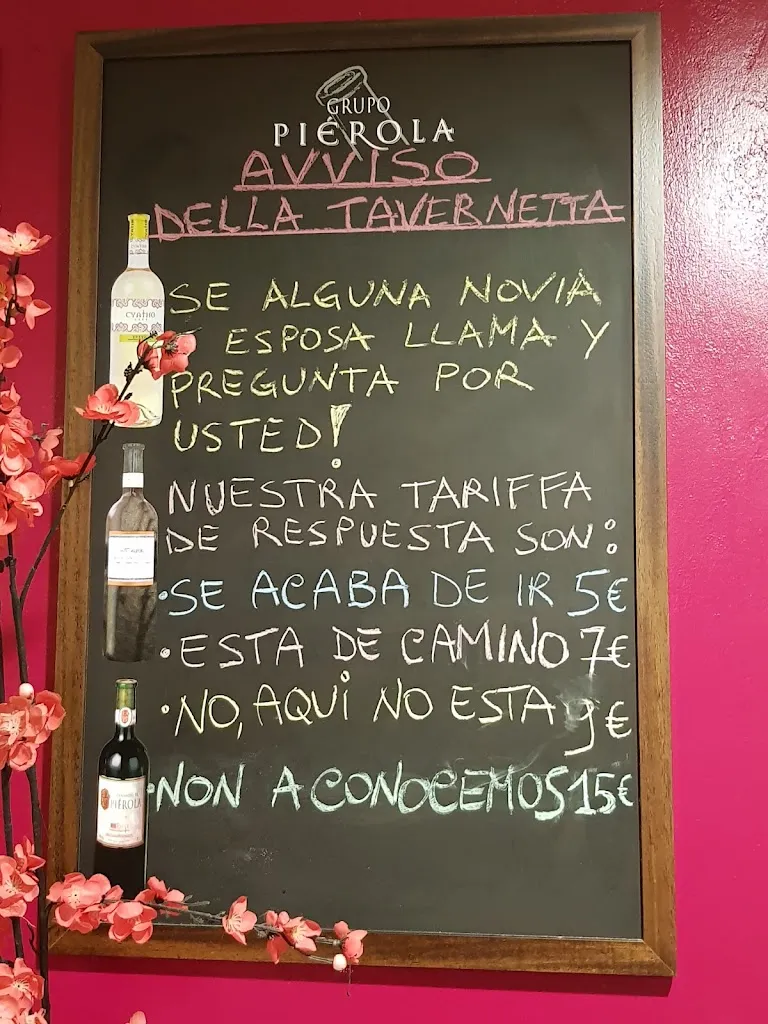 GRUPO
PIÉROLA
AVVISO
DELLA TAVERNETTA
SE ALGUNA NOVIA
ESPOSA LLAMA Y
PREGUNTA POR
USTED!
NUESTRA TARIFFA
DE RESPUESTA SON:
•SE ACABA DE IR 5€
•ESTA DE CAMINO 7€
•NO, AQUI NO ESTA 9€
•NON A CONOCEMOS 15€
CYATHO
PIÉROLA